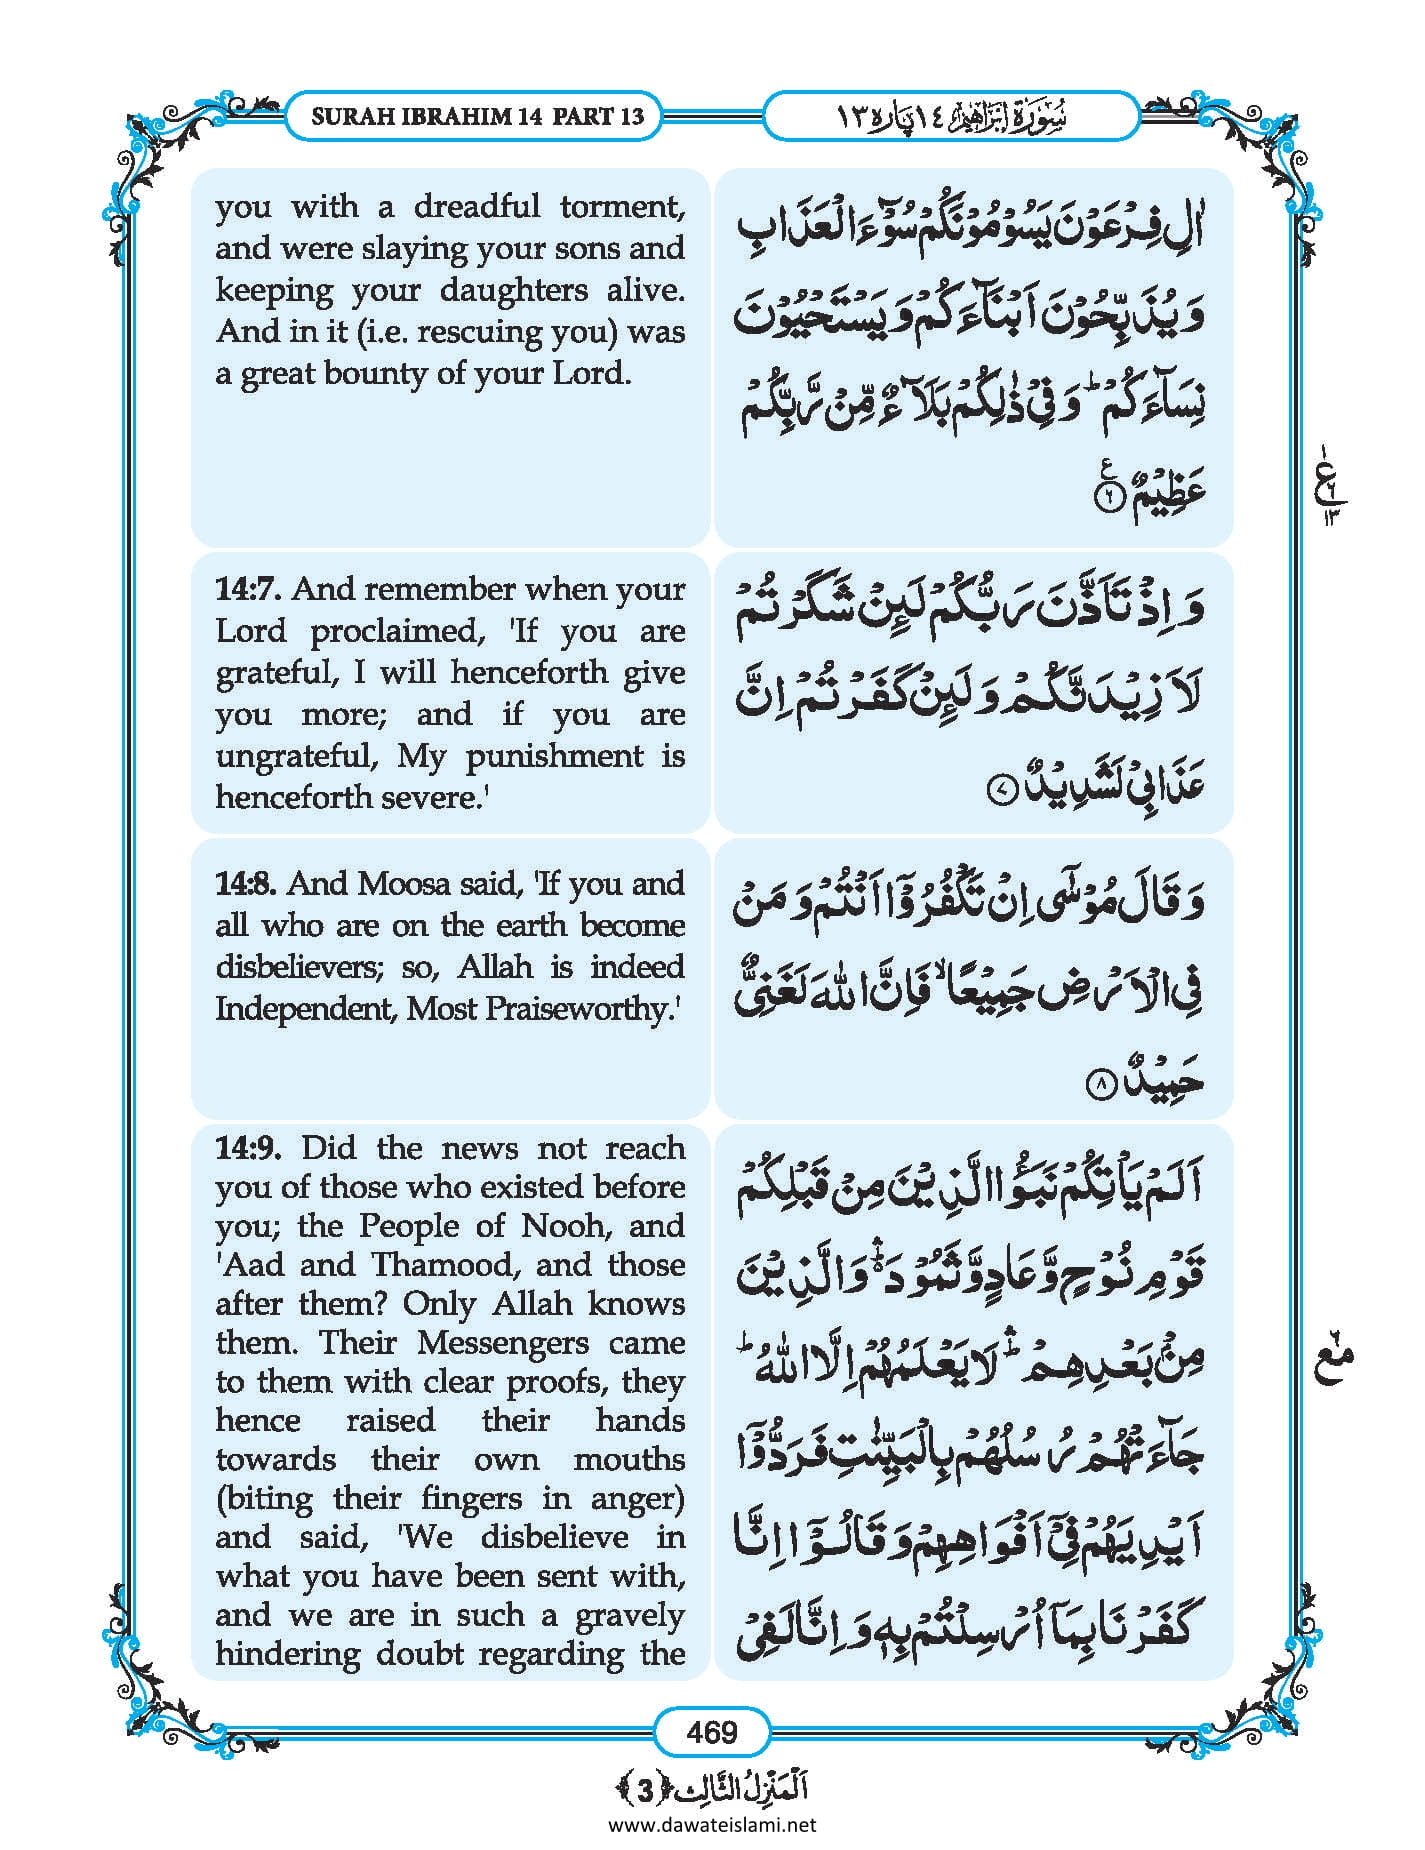 SURAH IBRAHIM 14 PART 13
سُوْرَةُ اِبْرٰهِيْم ١٤ پاره ١٣
you with a dreadful torment,
and were slaying your sons and
keeping your daughters alive.
And in it (i.e. rescuing you) was
a great bounty of your Lord.
اٰلِ فِرْعَوْنَ یَسُوْمُوْنَكُمْ سُوْٓءَ الْعَذَابِ
وَ یُذَبِّحُوْنَ اَبْنَآءَكُمْ وَ یَسْتَحْیُوْنَ
نِسَآءَكُمْ ؕ وَ فِیْ ذٰلِكُمْ بَلَآءٌ مِّنْ رَّبِّكُمْ
عَظِیْمٌ ۠﴿۶﴾
ع
١
٦
١٣
14:7. And remember when your
Lord proclaimed, 'If you are
grateful, I will henceforth give
you more; and if you are
ungrateful, My punishment is
henceforth severe.'
وَ اِذْ تَاَذَّنَ رَبُّكُمْ لَىِٕنْ شَكَرْتُمْ
لَاَزِیْدَنَّكُمْ وَ لَىِٕنْ كَفَرْتُمْ اِنَّ
عَذَابِیْ لَشَدِیْدٌ ﴿۷﴾
14:8. And Moosa said, 'If you and
all who are on the earth become
disbelievers; so, Allah is indeed
Independent, Most Praiseworthy.'
وَ قَالَ مُوْسٰۤی اِنْ تَكْفُرُوْۤا اَنْتُمْ وَ مَنْ
فِی الْاَرْضِ جَمِیْعًا ۙ فَاِنَّ اللهَ لَغَنِیٌّ
حَمِیْدٌ ﴿۸﴾
14:9. Did the news not reach
you of those who existed before
you; the People of Nooh, and
'Aad and Thamood, and those
after them? Only Allah knows
them. Their Messengers came
to them with clear proofs, they
hence raised their hands
towards their own mouths
(biting their fingers in anger)
and said, 'We disbelieve in
what you have been sent with,
and we are in such a gravely
hindering doubt regarding the
اَلَمْ یَاْتِكُمْ نَبَؤُا الَّذِیْنَ مِنْ قَبْلِكُمْ
قَوْمِ نُوْحٍ وَّ عَادٍ وَّ ثَمُوْدَ ۛؕ وَ الَّذِیْنَ
مِنْۢ بَعْدِهِمْ ۛؕ لَا یَعْلَمُهُمْ اِلَّا اللهُ ؕ
جَآءَتْهُمْ رُسُلُهُمْ بِالْبَیِّنٰتِ فَرَدُّوْۤا
اَیْدِیَهُمْ فِیْۤ اَفْوَاهِهِمْ وَ قَالُوْۤا اِنَّا
كَفَرْنَا بِمَاۤ اُرْسِلْتُمْ بِهٖ وَ اِنَّا لَفِیْ
مع
469
اَلْمَنْزِلُ الثَّالِث ﴿3﴾
www.dawateislami.net